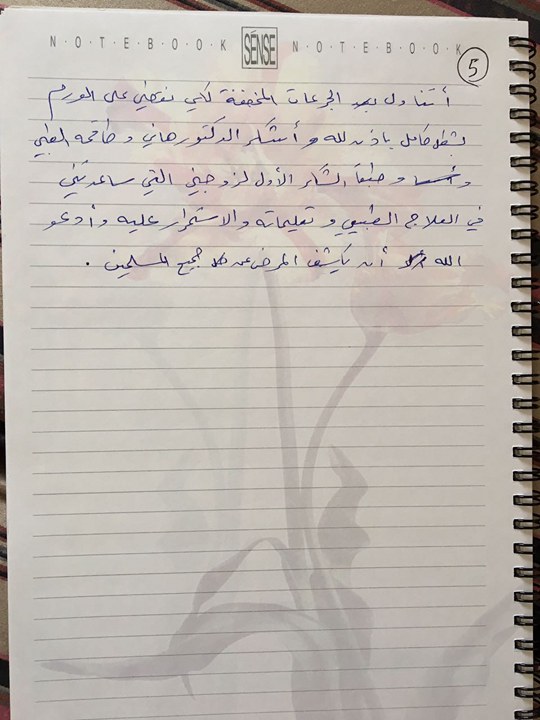 N·O·T·E·B·O·O·K SENSE N·O·T·E·B·O·O·K
5
أتناول الجرعات المخففة لكي نقضي على الورم
بشكل كامل باذن الله وأشكر الدكتور هاني وطاقمه الطبي
و طبعاً الشكر الأول لزوجتي التي ساعدتني
في العلاج الطبيعي وتعليماته والاستمرار عليه وأدعو
الله أن يكشف المرض عن جميع المسلمين .